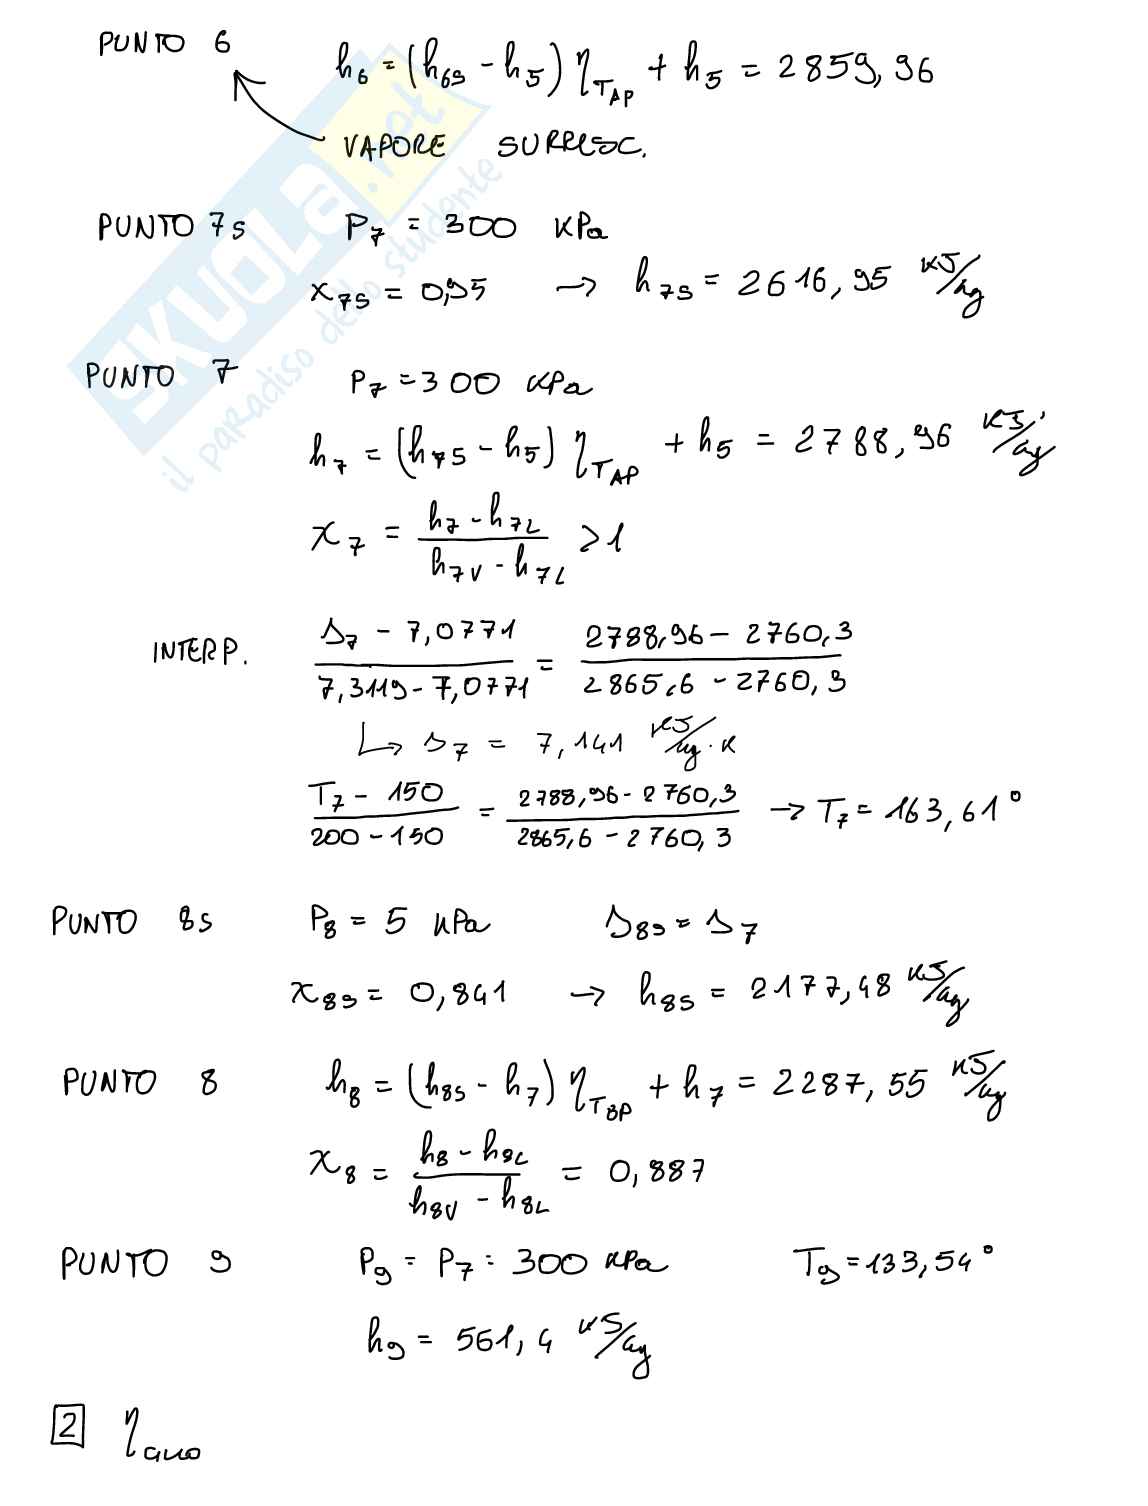 PUNTO 6 h₆ = (h₆ₛ - h₅) η_TAP + h₅ = 2859,96
VAPORE SURRISC.
PUNTO 7s P₇ = 300 KPa
x₇ₛ = 0,95 → h₇ₛ = 2616,95 KJ/kg
PUNTO 7 P₇ = 300 KPa
h₇ = (h₇ₛ - h₅) η_TAP + h₅ = 2788,96 KJ/kg
x₇ = (h₇ - h₇L)/(h₇V - h₇L) > 1
INTERP. (s₇ - 7,0771)/(7,3119 - 7,0771) = (2788,96 - 2760,3)/(2865,6 - 2760,3)
↳ s₇ = 7,141 KJ/kg·K
(T₇ - 150)/(200 - 150) = (2788,96 - 2760,3)/(2865,6 - 2760,3) → T₇ = 163,61°
PUNTO 8s P₈ = 5 KPa s₈ₛ = s₇
x₈ₛ = 0,841 → h₈ₛ = 2177,48 KJ/kg
PUNTO 8 h₈ = (h₈ₛ - h₇) η_TBP + h₇ = 2287,55 KJ/kg
x₈ = (h₈ - h₈L)/(h₈V - h₈L) = 0,887
PUNTO 9 P₉ = P₇ = 300 KPa T₉ = 133,54°
h₉ = 561,4 KJ/kg
2 η
SKUOLA.net
il paradiso dello studente